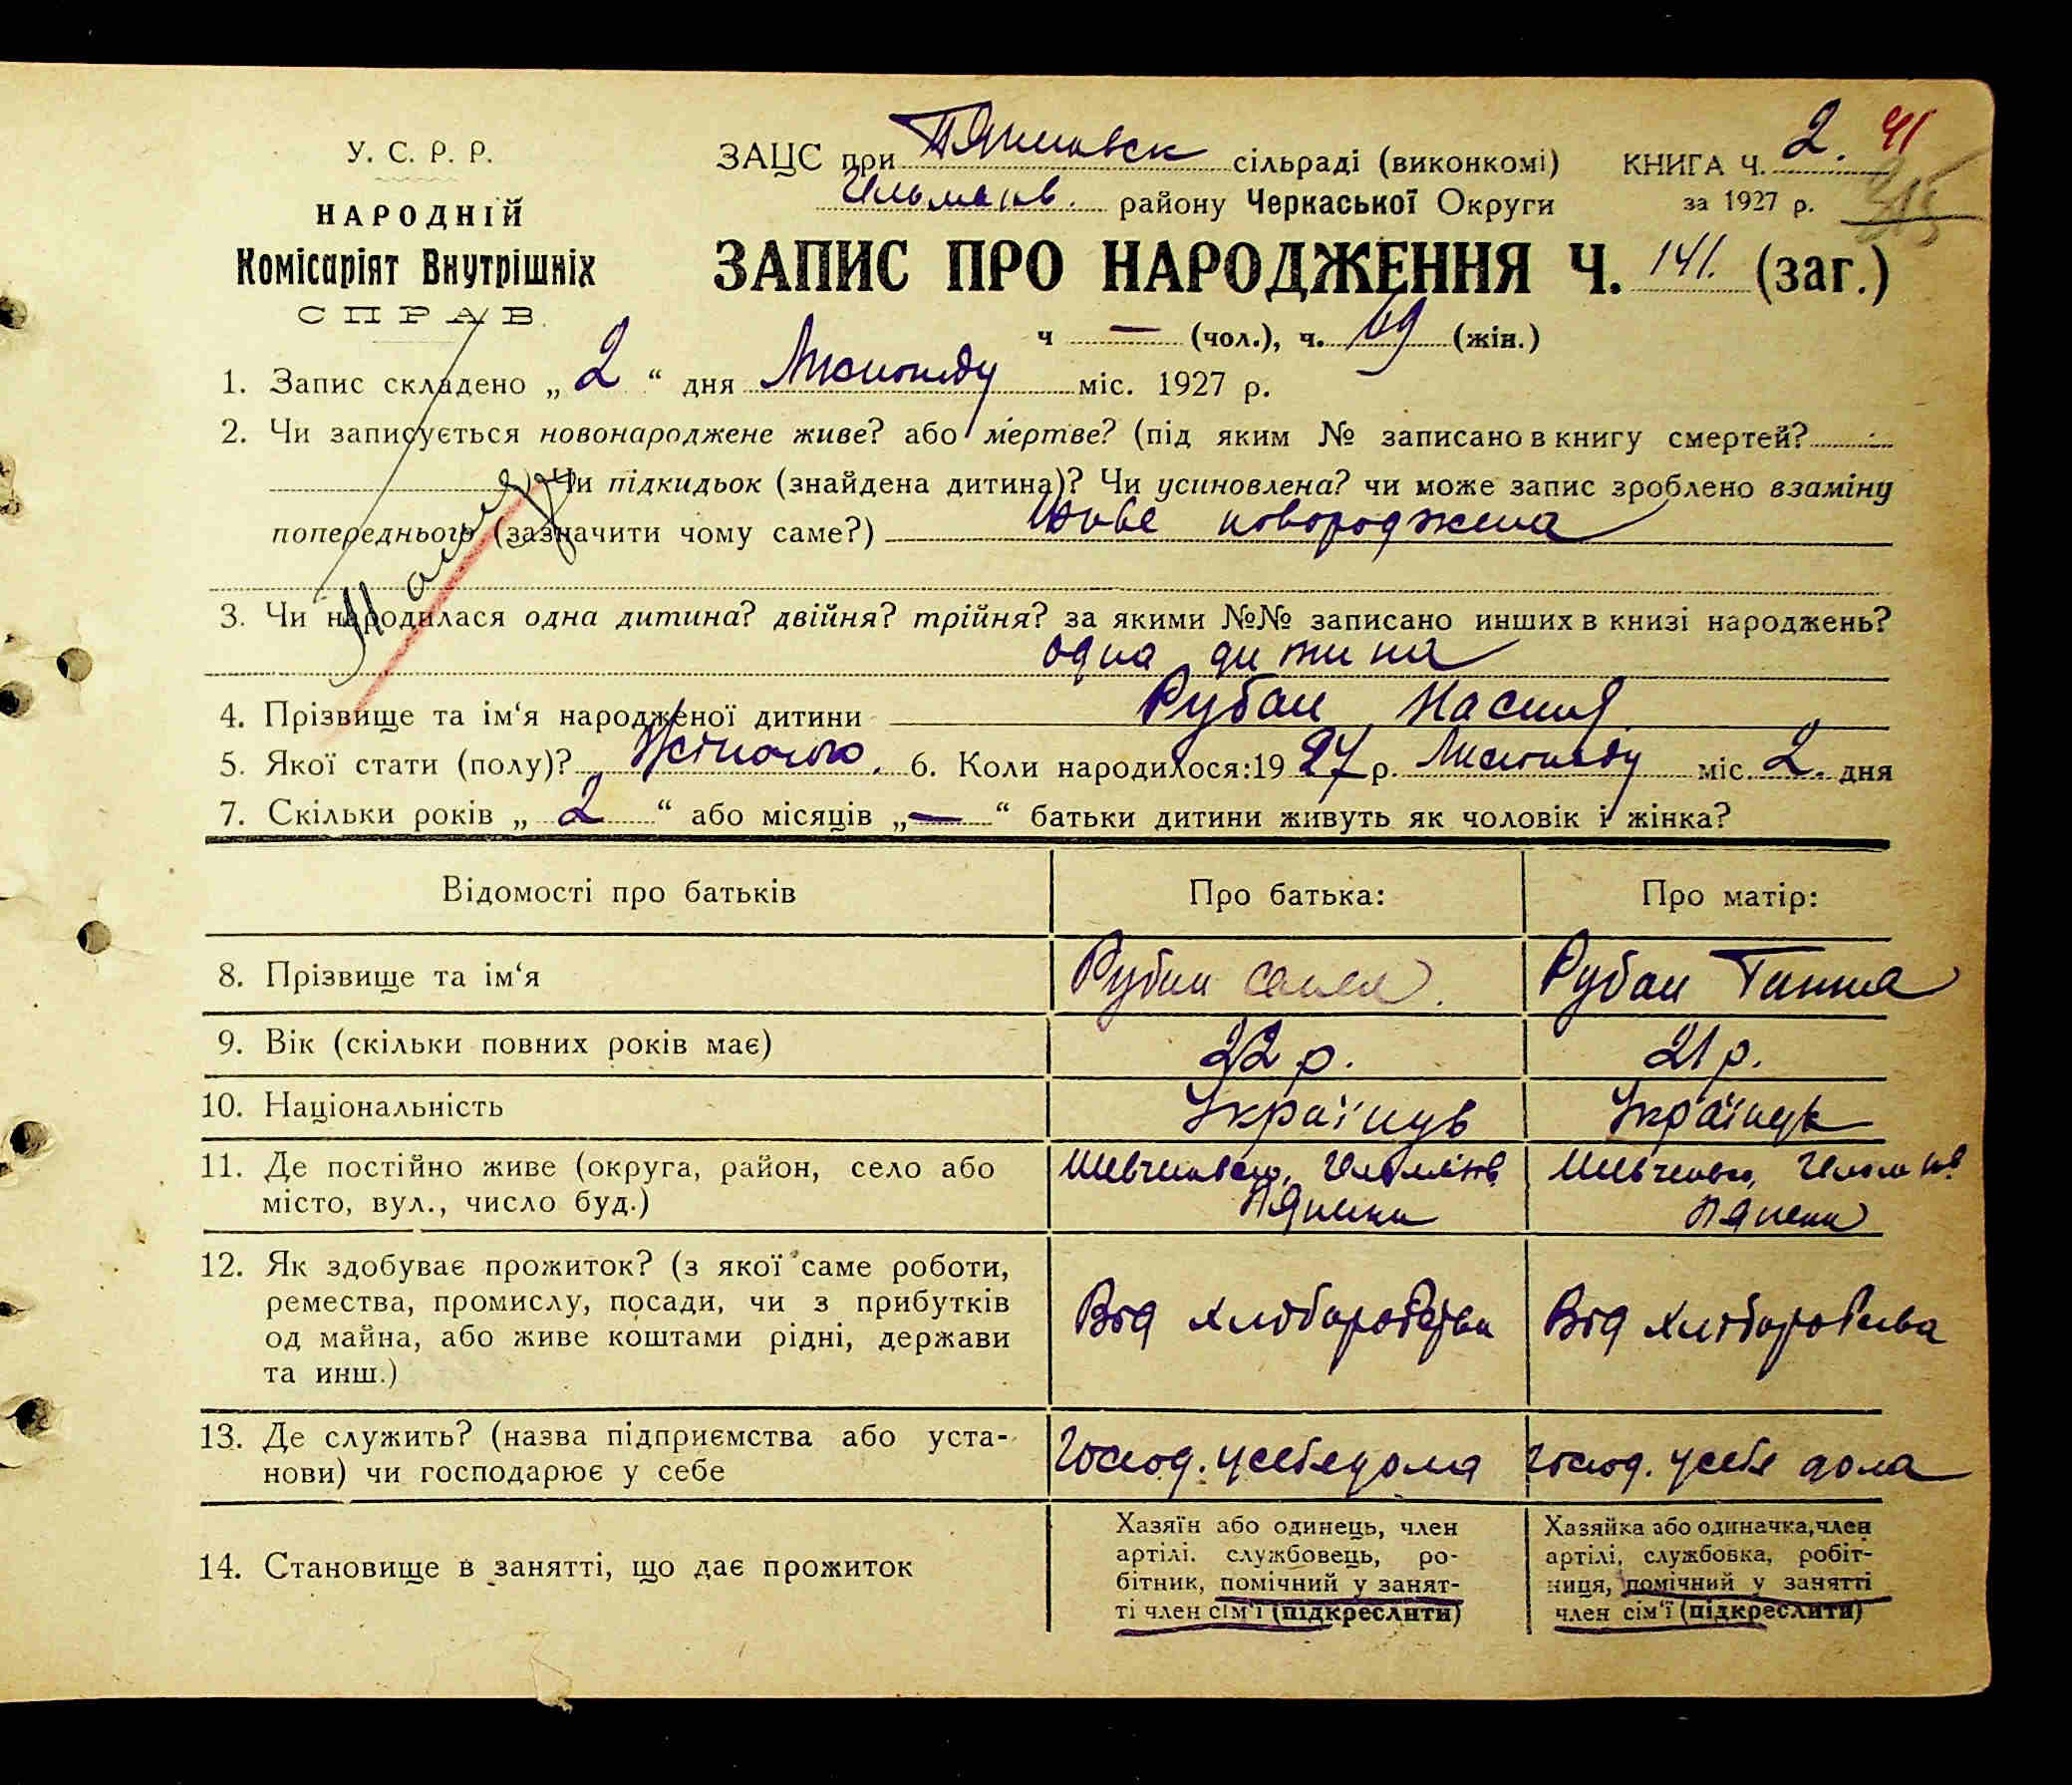 У. С. Р. Р.
НАРОДНІЙ
Комісаріят Внутрішніх
СПРАВ
ЗАЦС при сільраді (виконкомі)
району Черкаської Округи
КНИГА Ч. 2.
за 1927 р.
41
315
ЗАПИС ПРО НАРОДЖЕННЯ Ч. 141. (заг.)
ч — (чол.), ч. 69 (жін.)
1. Запис складено „ 2 “ дня Листопаду міс. 1927 р.
2. Чи записується новонароджене живе? або мертве? (під яким № записано в книгу смертей?
) Чи підкидьок (знайдена дитина)? Чи усиновлена? чи може запис зроблено взаміну
попереднього (зазначити чому саме?) живе новороджена
3. Чи народилася одна дитина? двійня? трійня? за якими №№ записано инших в книзі народжень?
одна дитина
4. Прізвище та ім‘я народженої дитини Рубан Настя
5. Якої стати (полу)? Жіночого. 6. Коли народилося: 1927 р. Листопаду міс. 2. дня
7. Скільки років „ 2 “ або місяців „ — “ батьки дитини живуть як чоловік і жінка?
Відомості про батьків Про батька: Про матір:
8. Прізвище та ім‘я Рубан Рубан Ганна
9. Вік (скільки повних років має) 22 р. 21 р.
10. Національність Українць Українка
11. Де постійно живе (округа, район, село або
місто, вул., число буд.)
12. Як здобуває прожиток? (з якої саме роботи,
ремества, промислу, посади, чи з прибутків
од майна, або живе коштами рідні, держави
та инш.)
Від хліборобства Від хліборобства
13. Де служить? (назва підприємства або уста-
нови) чи господарює у себе
Господ. у себе дома Господ. у себе дома
14. Становище в занятті, що дає прожиток
Хазяїн або одинець, член
артілі, службовець, ро-
бітник, помічний у занят-
ті член сім‘ї (підкреслити)
Хазяйка або одиначка, член
артілі, службовка, робіт-
ниця, помічний у занятті
член сім‘ї (підкреслити)